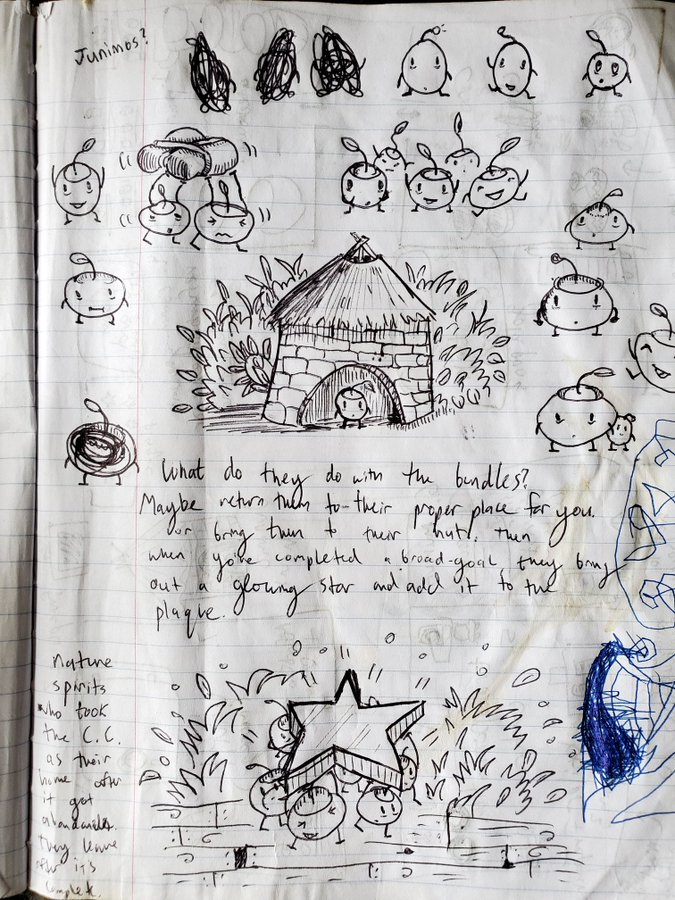 Junimos?
What do they do with the bundles?
Maybe return them to their proper place for you.
or bring them to their huts. Then
when you've completed a broad-goal they bring
out a glowing star and add it to the
plaque.
nature
spirits
who took
the C.C.
as their
home after
it got
abandoned.
they leave
after it's
complete.